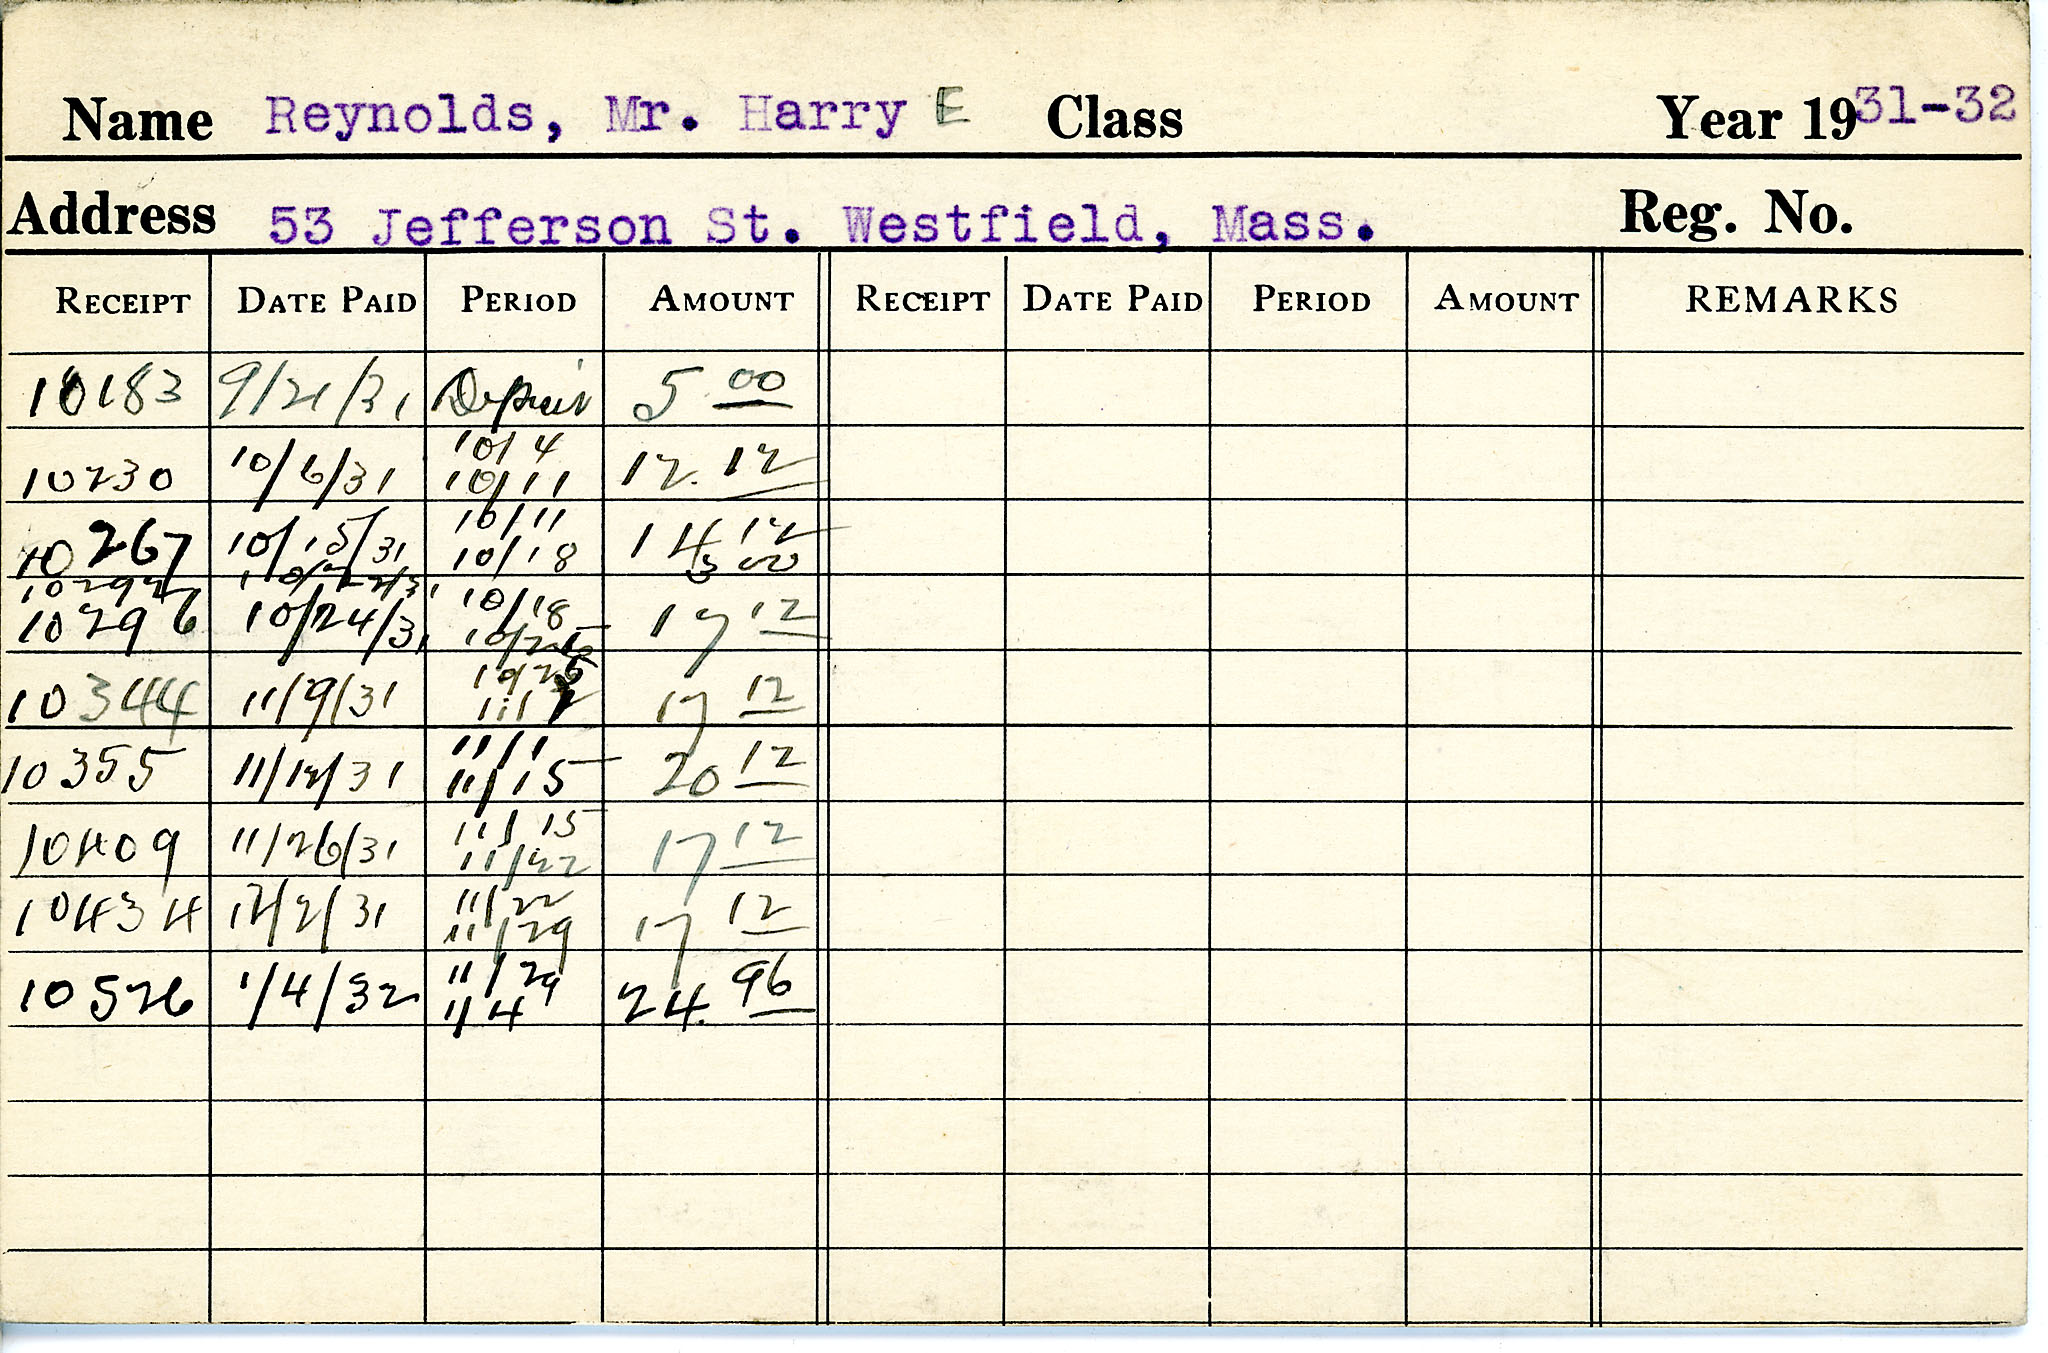 Name Reynolds, Mr. Harry E Class Year 1931-32
Address 53 Jefferson St. Westfield, Mass. Reg. No.
RECEIPT DATE PAID PERIOD AMOUNT RECEIPT DATE PAID PERIOD AMOUNT REMARKS
10183 9/21/31 Deposit 5 00
10/4
10230 10/6/31 10/11 12.12
10/11
10267 10/15/31 10/18 14 12
10292 10/22/31 3 00
10/18
10296 10/24/31 10/25 17 12
10/25
10344 11/9/31 11/1 17 12
11/1
10355 11/12/31 11/15 20 12
11/15
10409 11/26/31 11/22 17 12
11/22
10434 12/2/31 11/29 17 12
11/29
10526 1/4/32 1/4 24.96